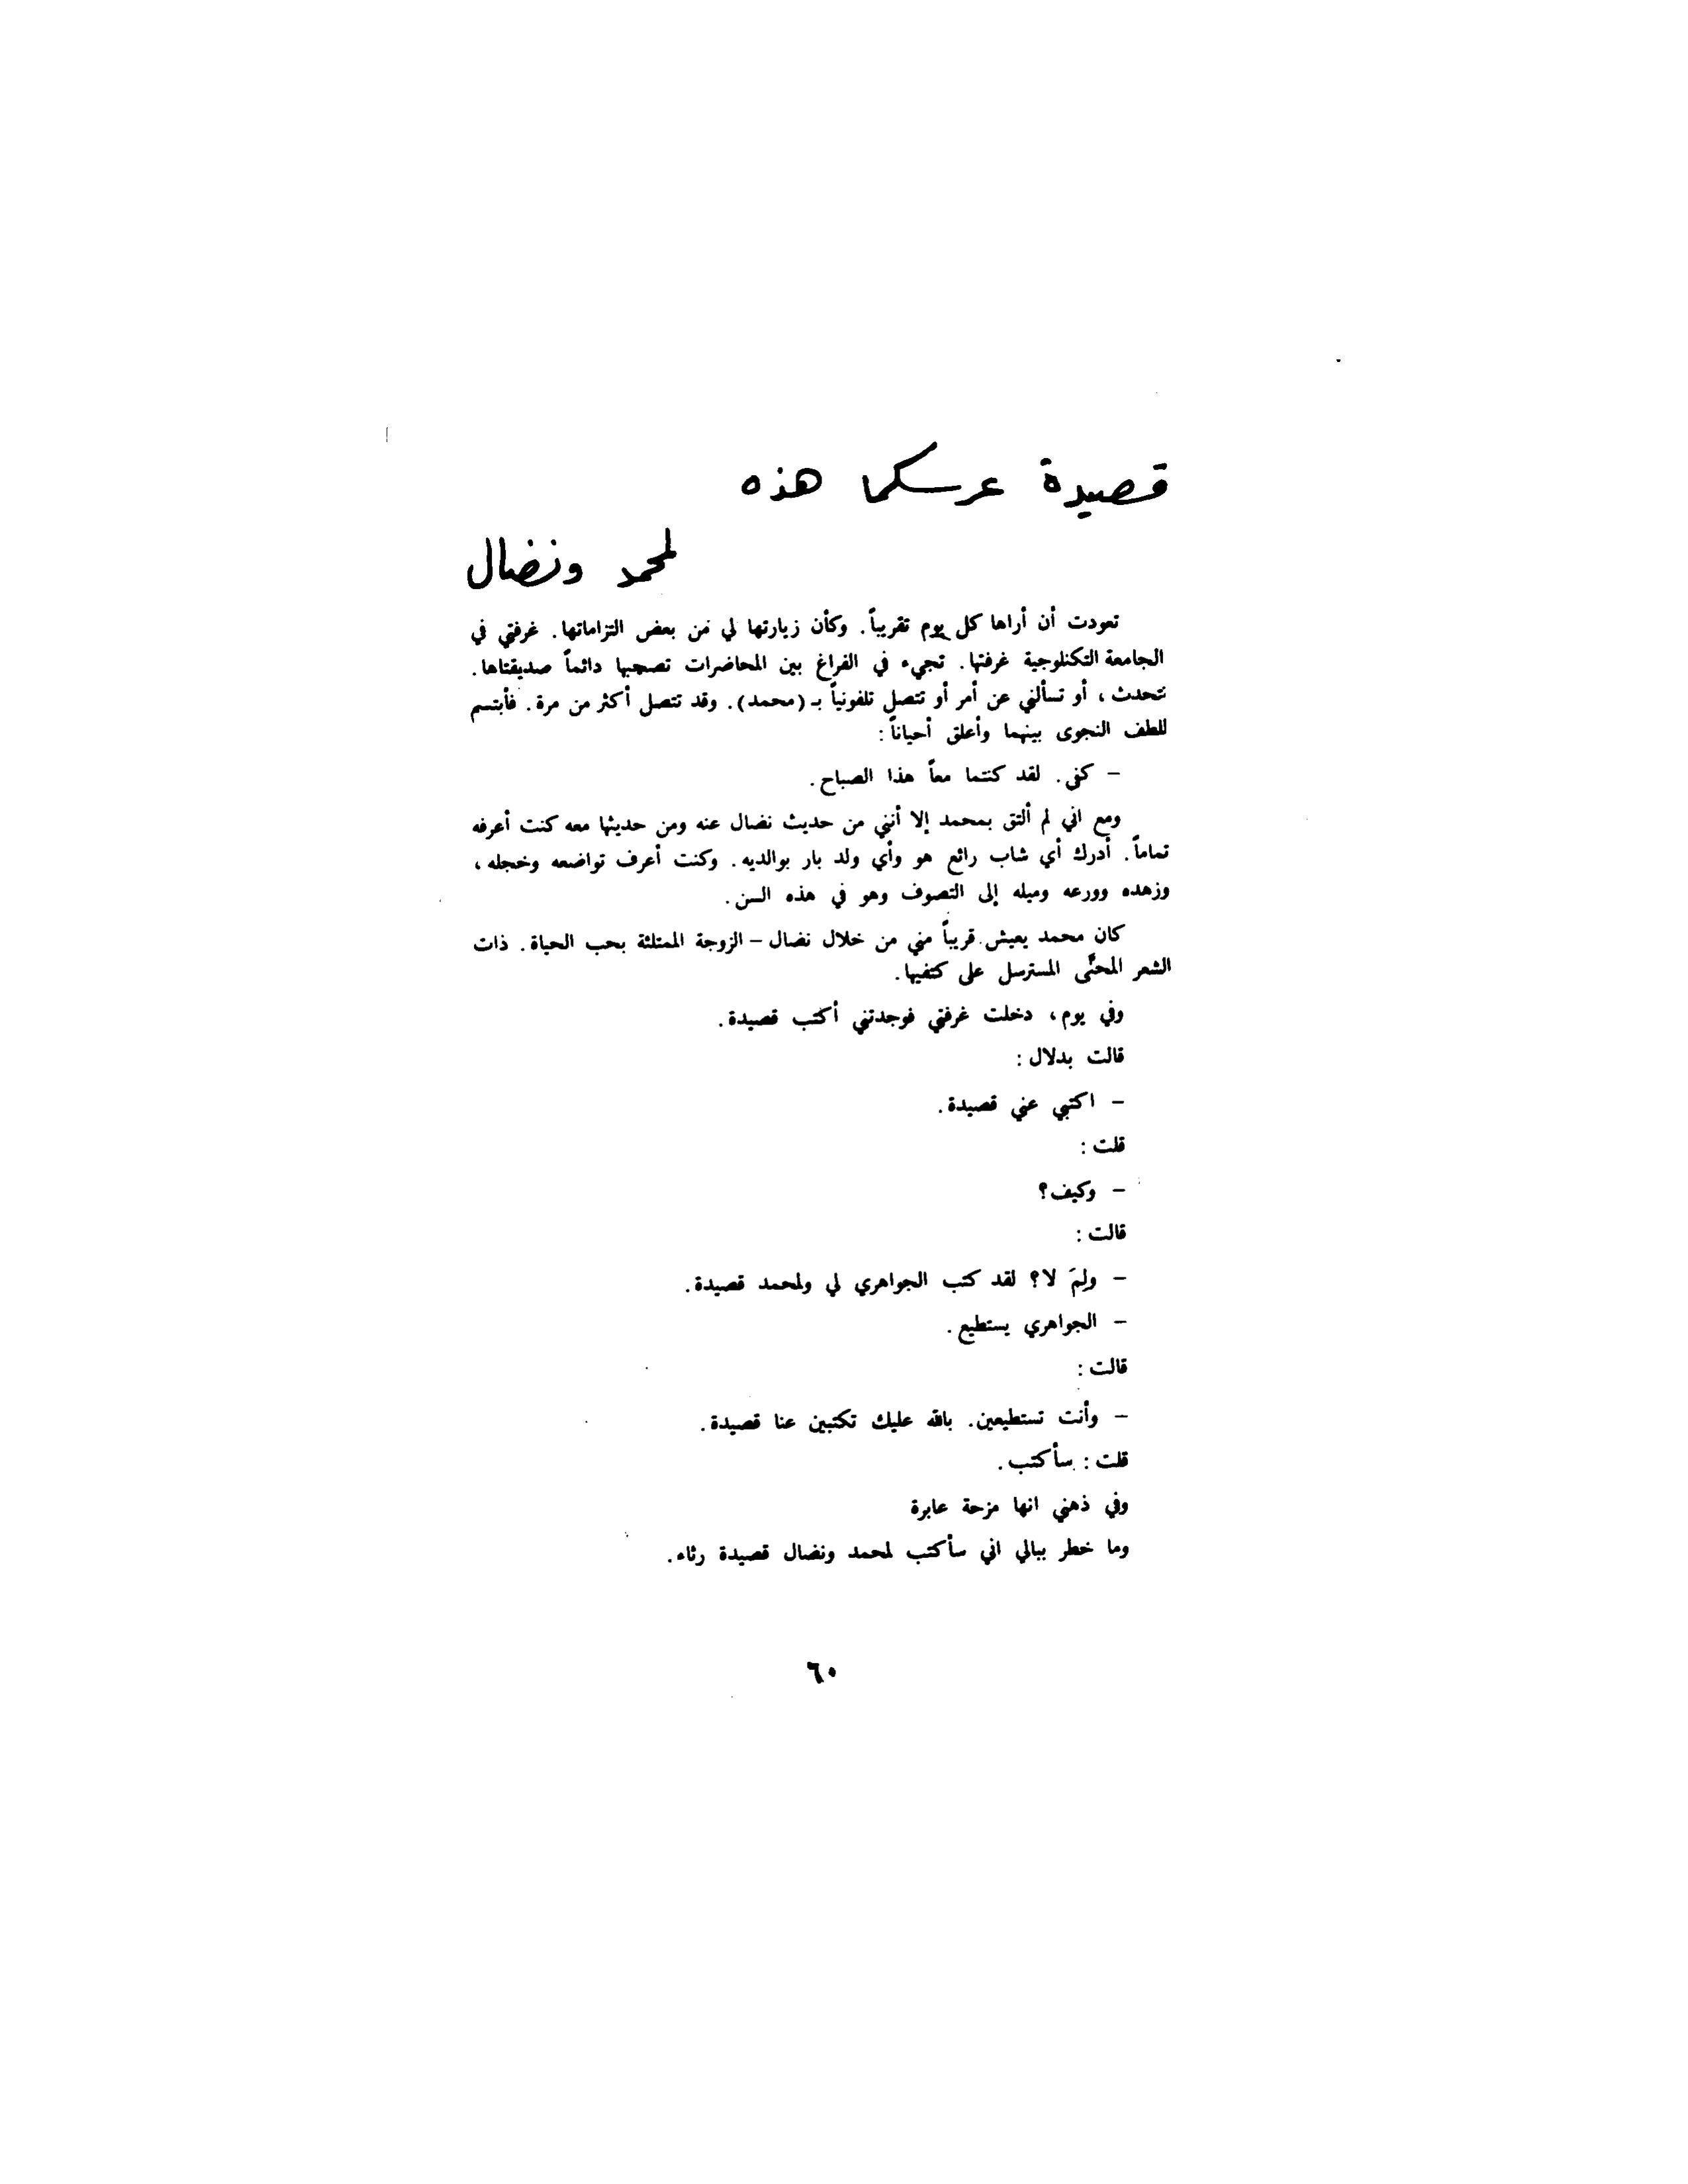 قصيدة عرسكما هذه
لمحمد ونضال
تعودت أن أراها كل يوم تقريباً. وكأن زيارتها لي من بعض التزاماتها. غرفتي في
الجامعة التكنلوجية غرفتها. تجيء في الفراغ بين المحاضرات تصحبها دائماً صديقتاها.
نتحدث، أو تسألني عن أمر أو تتصل تلفونياً بـ (محمد). وقد تتصل أكثر من مرة. فأبتسم
للطف النجوى بينهما وأعلق أحياناً:
– كفى. لقد كنتما معاً هذا الصباح.
ومع اني لم ألتق بمحمد إلا أنني من حديث نضال عنه ومن حديثها معه كنت أعرفه
تماماً. أدرك أي شاب رائع هو وأي ولد بار بوالديه. وكنت أعرف تواضعه وخجله،
وزهده وورعه وميله إلى التصوف وهو في هذه السن.
كان محمد يعيش قريباً مني من خلال نضال – الزوجة الممتلئة بحب الحياة. ذات
الشعر المحنّى المسترسل على كتفيها.
وفي يوم، دخلت غرفتي فوجدتني أكتب قصيدة.
قالت بدلال:
– اكتبي عني قصيدة.
قلت:
– وكيف؟
قالت:
– ولِمَ لا؟ لقد كتب الجواهري لي ولمحمد قصيدة.
– الجواهري يستطيع.
قالت:
– وأنت تستطيعين. بالله عليك تكتبين عنا قصيدة.
قلت: سأكتب.
وفي ذهني انها مزحة عابرة
وما خطر ببالي اني سأكتب لمحمد ونضال قصيدة رثاء.
٦٠